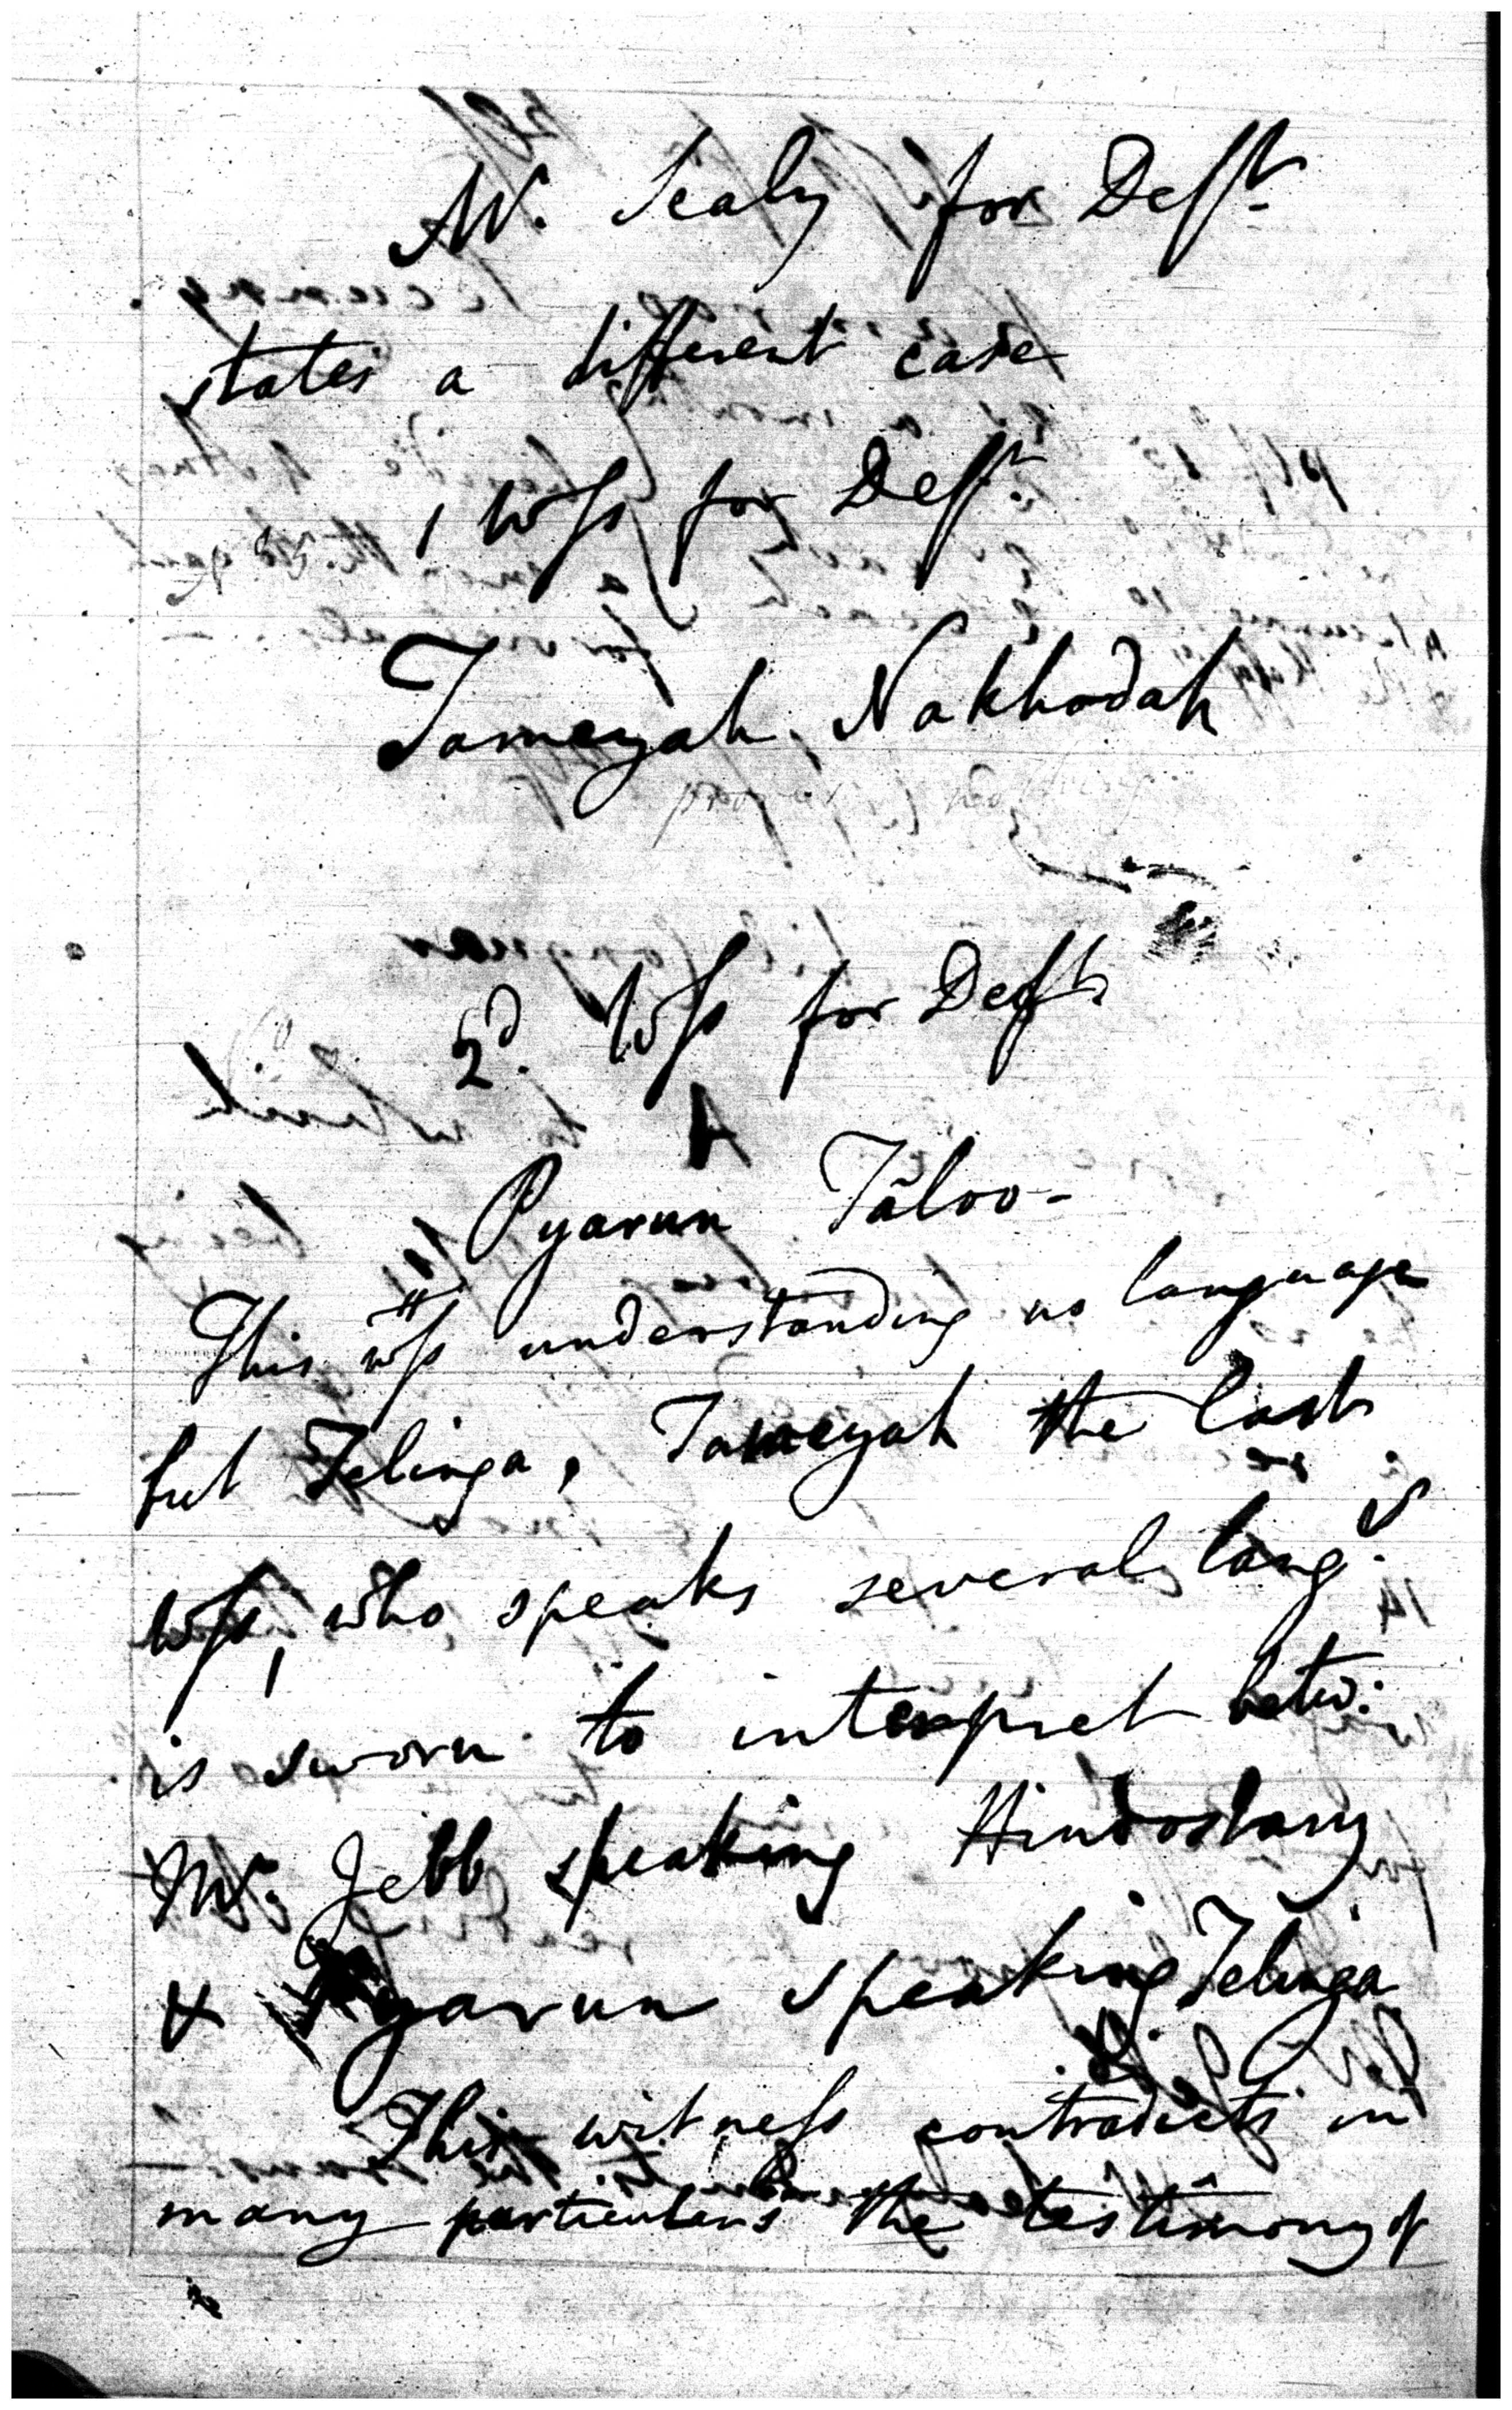 Mr. Sealy for Deft.
states a different case
1 Wss for Deft.
Tameyah, Nakhodah
2d. Wss for Deft.
Pyarun Tãloo -
This wss understanding no language
but Telinga, Tameyah the last
Wss, who speaks several langs.
is sworn to interpret betw:
Mr. Jebb speaking Hindostany
& Pyarun speaking Telinga
This witness contradicts in
many particulars the testimony of